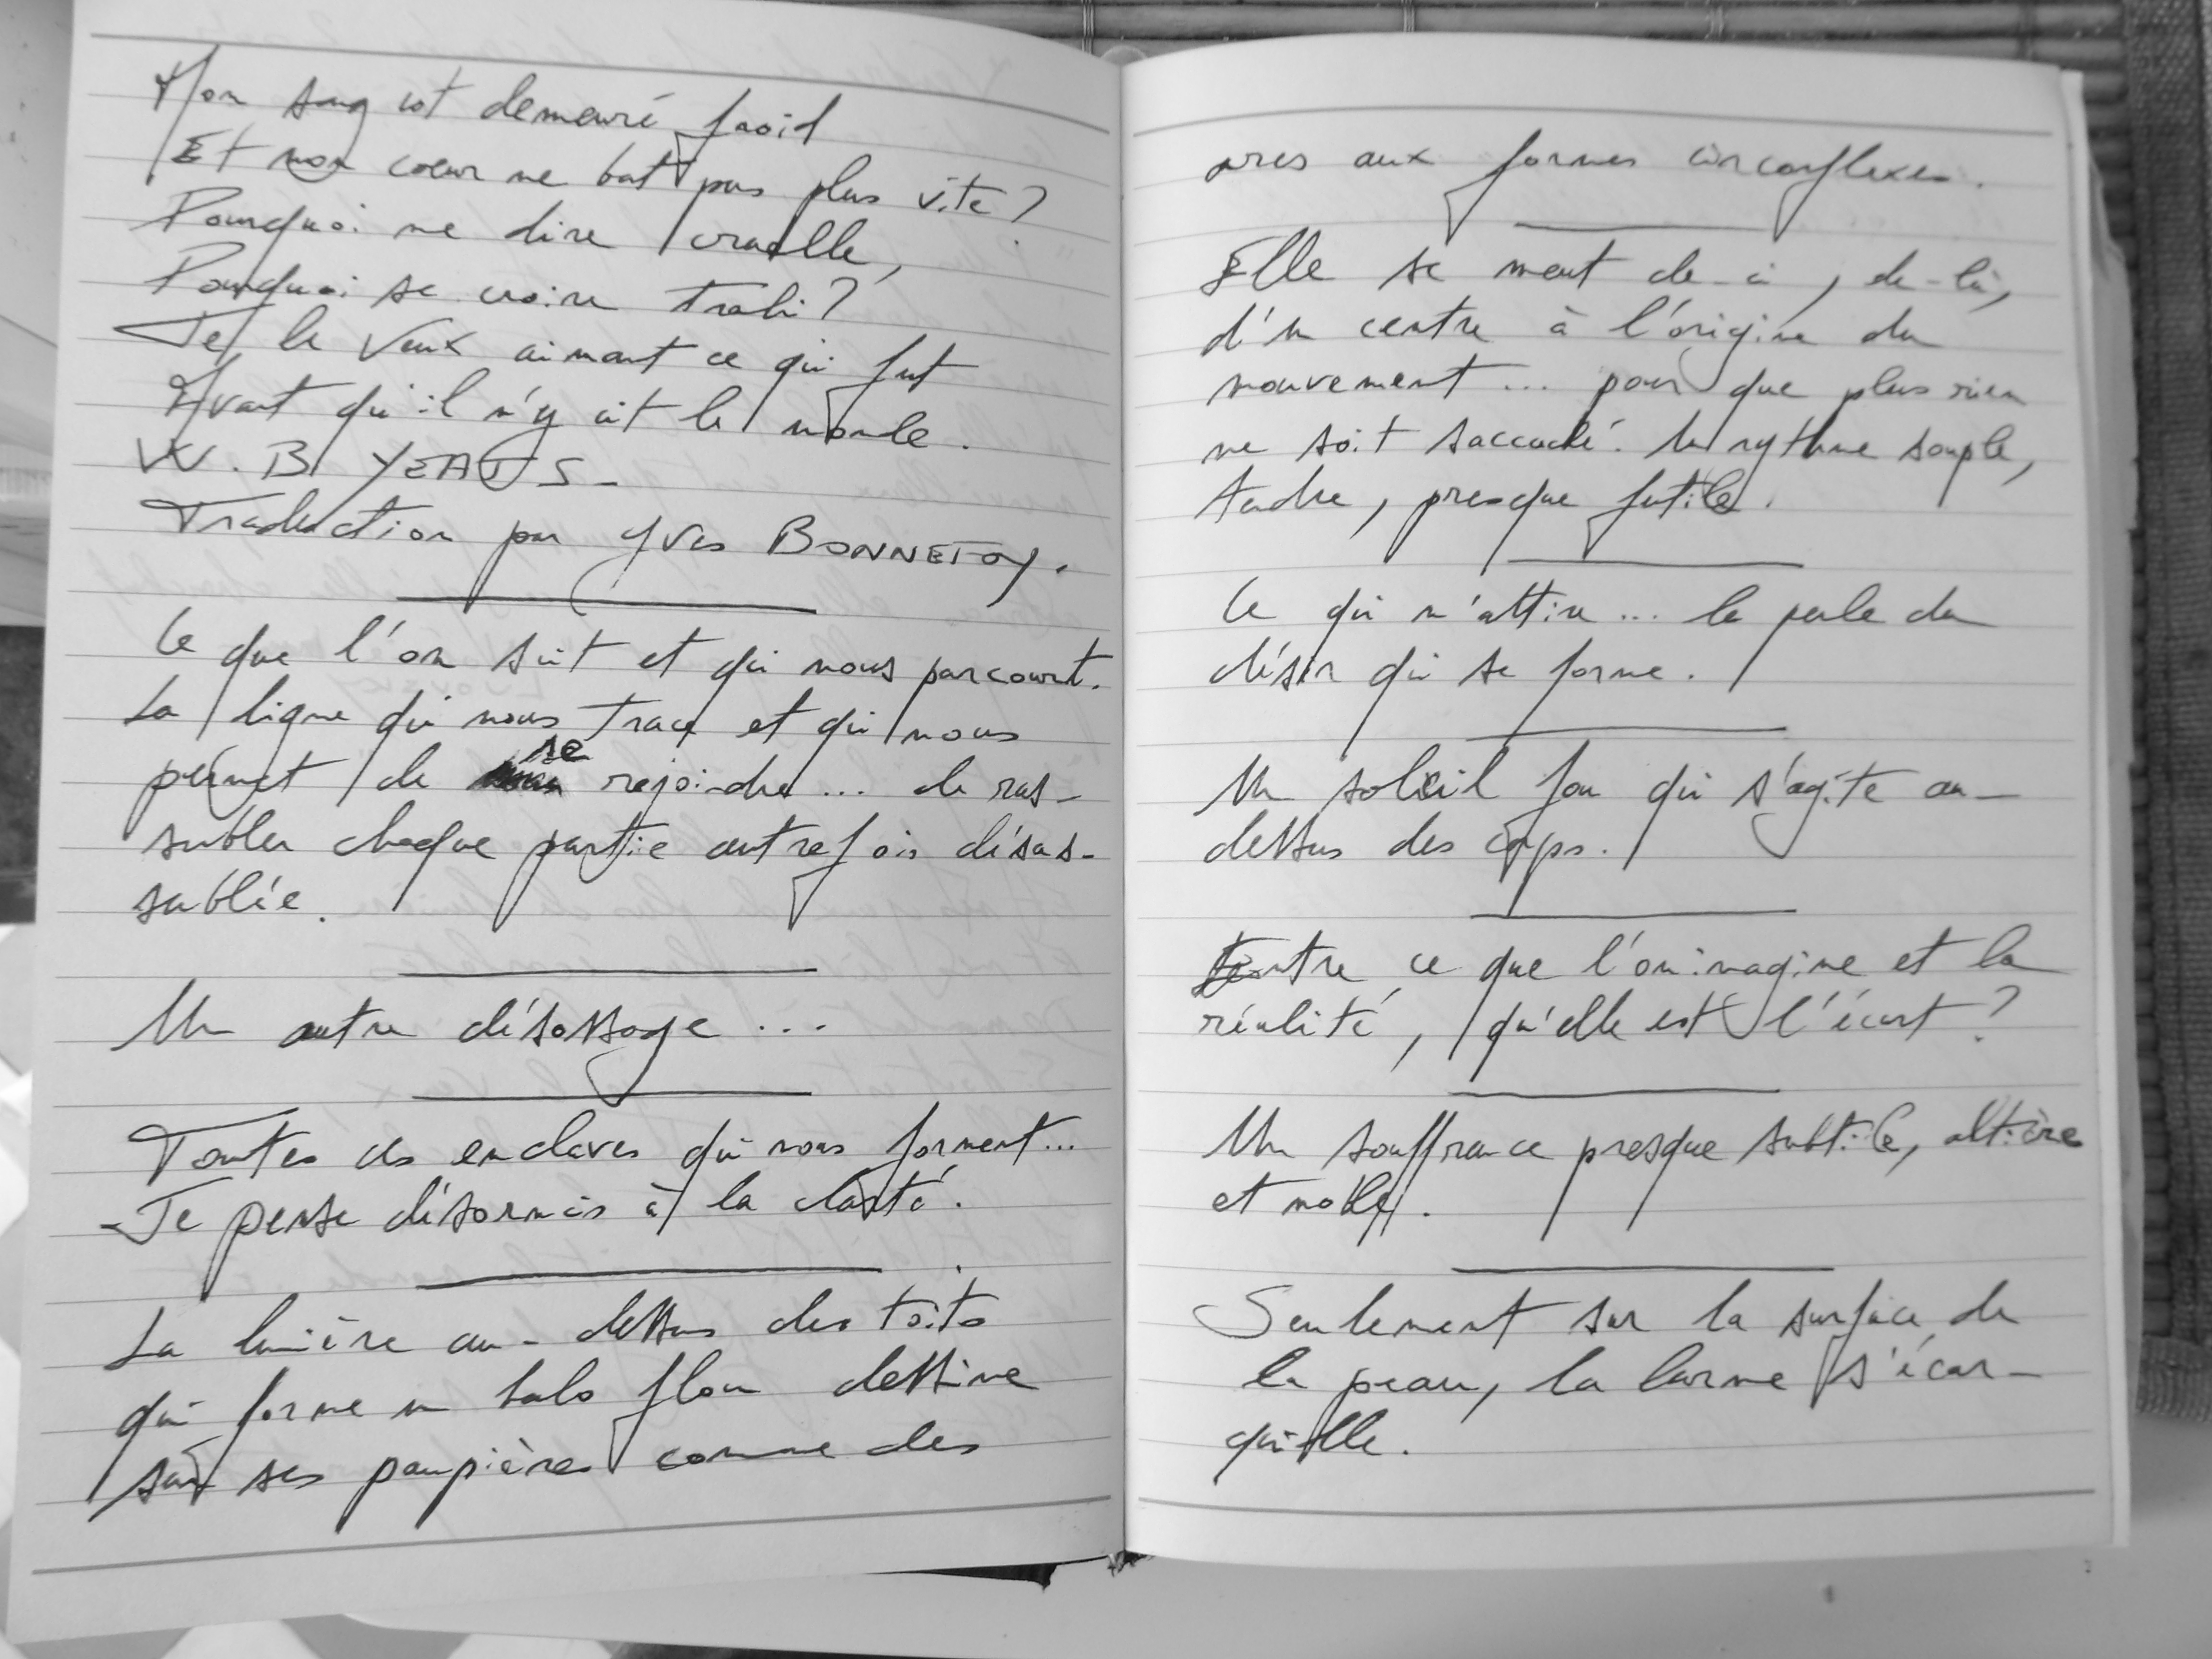 Mon sang est demeuré froid
Et mon coeur ne bat pas plus vite?
Pourquoi me dire cruelle,
Pourquoi se croire trahi?
Je le veux aimant ce qui fut
Avant qu'il n'y ait le monde.
W. B YEATS_
Traduction par Yves BONNEFOY.
Ce que l'on suit et qui nous parcourt.
La ligne qui nous trace et qui nous
permet de se rejoindre... de ras-
sembler chaque partie autrefois désas-
semblée.
Un autre désossage...
Toutes ces enclaves qui nous forment...
Je pense désormais à la clarté.
La lumière au-dessus des toits
qui forme un halo flou dessine
sur ses paupières comme des
ares aux formes circonflexes.
Elle se meut de-ci, de-là,
d'un centre à l'origine du
mouvement... pour que plus rien
ne soit saccadé. Un rythme souple,
tendre, presque futile.
Ce qui m'attire... la perle du
désir qui se forme.
Un soleil fou qui s'agite au-
dessus des corps.
Entre ce que l'on imagine et la
réalité, qu'elle est l'écart?
Une souffrance presque subtile, altière
et noble.
Seulement sur la surface de
la peau, la larme s'écar-
quille.